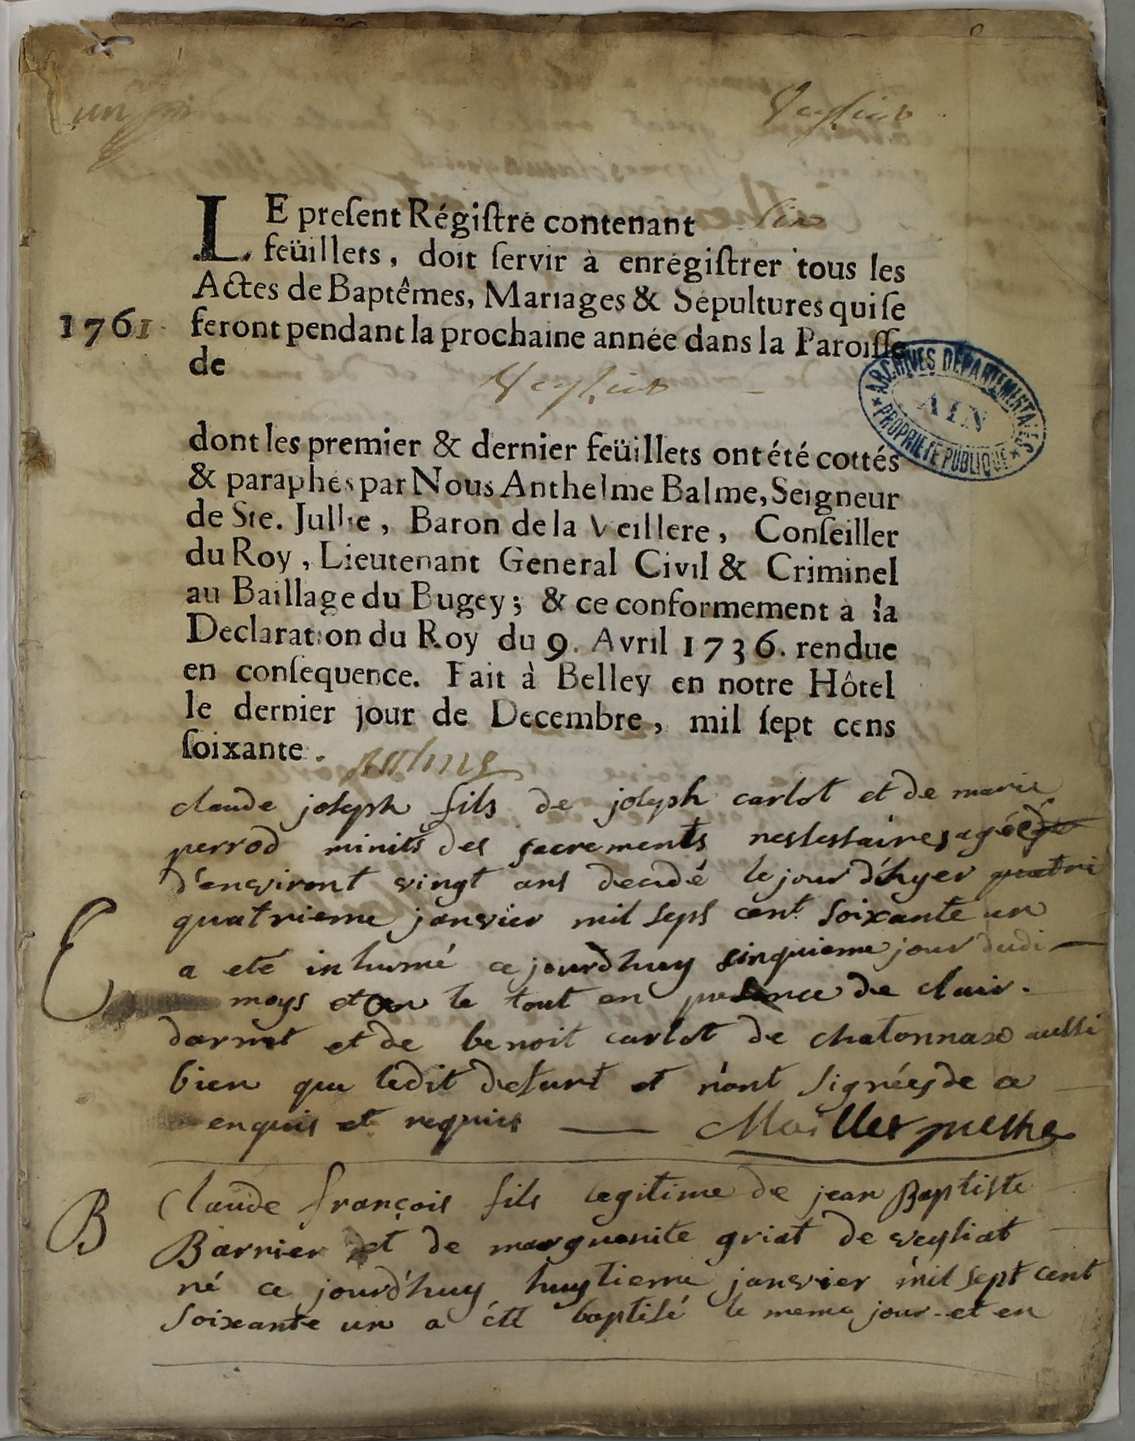 LE preſent Régiſtre contenant six
feüillets, doit ſervir à enrégiſtrer tous les
Actes de Baptêmes, Mariages & Sépultures qui ſe
1761 feront pendant la prochaine année dans la Paroiſſe
de
ARCHIVES DÉPARTEMENTALES
AIN
PROPRIÉTÉ PUBLIQUE
dont les premier & dernier feüillets ont été cottés
& paraphés par Nous Anthelme Balme, Seigneur
de Ste. Jullie, Baron de la Veillere, Conſeiller
du Roy, Lieutenant General Civil & Criminel
au Baillage du Bugey; & ce conformement a la
Declaration du Roy du 9. Avril 1736. rendue
en conſequence. Fait à Belley en notre Hôtel
le dernier jour de Decembre, mil ſept cens
ſoixante.
Balme
claude joseph fils de joseph carlot et de marie
perrod minits des sacrements nessessaires agée
d'environt vingt ans decedé le jour d'hyer quatri
quatrieme janvier mil sept cent soixante un
a eté inhumé ce jourdhuy sinquieme jour dudi
E moys et an le tout en presence de clair
darmet et de benoit carlot de chatonnax aussi
bien que ledit defunt et n'ont signées de ce
enquis et requis Maillet prestre
B Claude françois fils legitime de jean Baptiste
Barnier et de marguerite griat de veysiat
né ce jourd'huy huytieme janvier mil sept cent
soixante un a été baptisé le meme jour et en